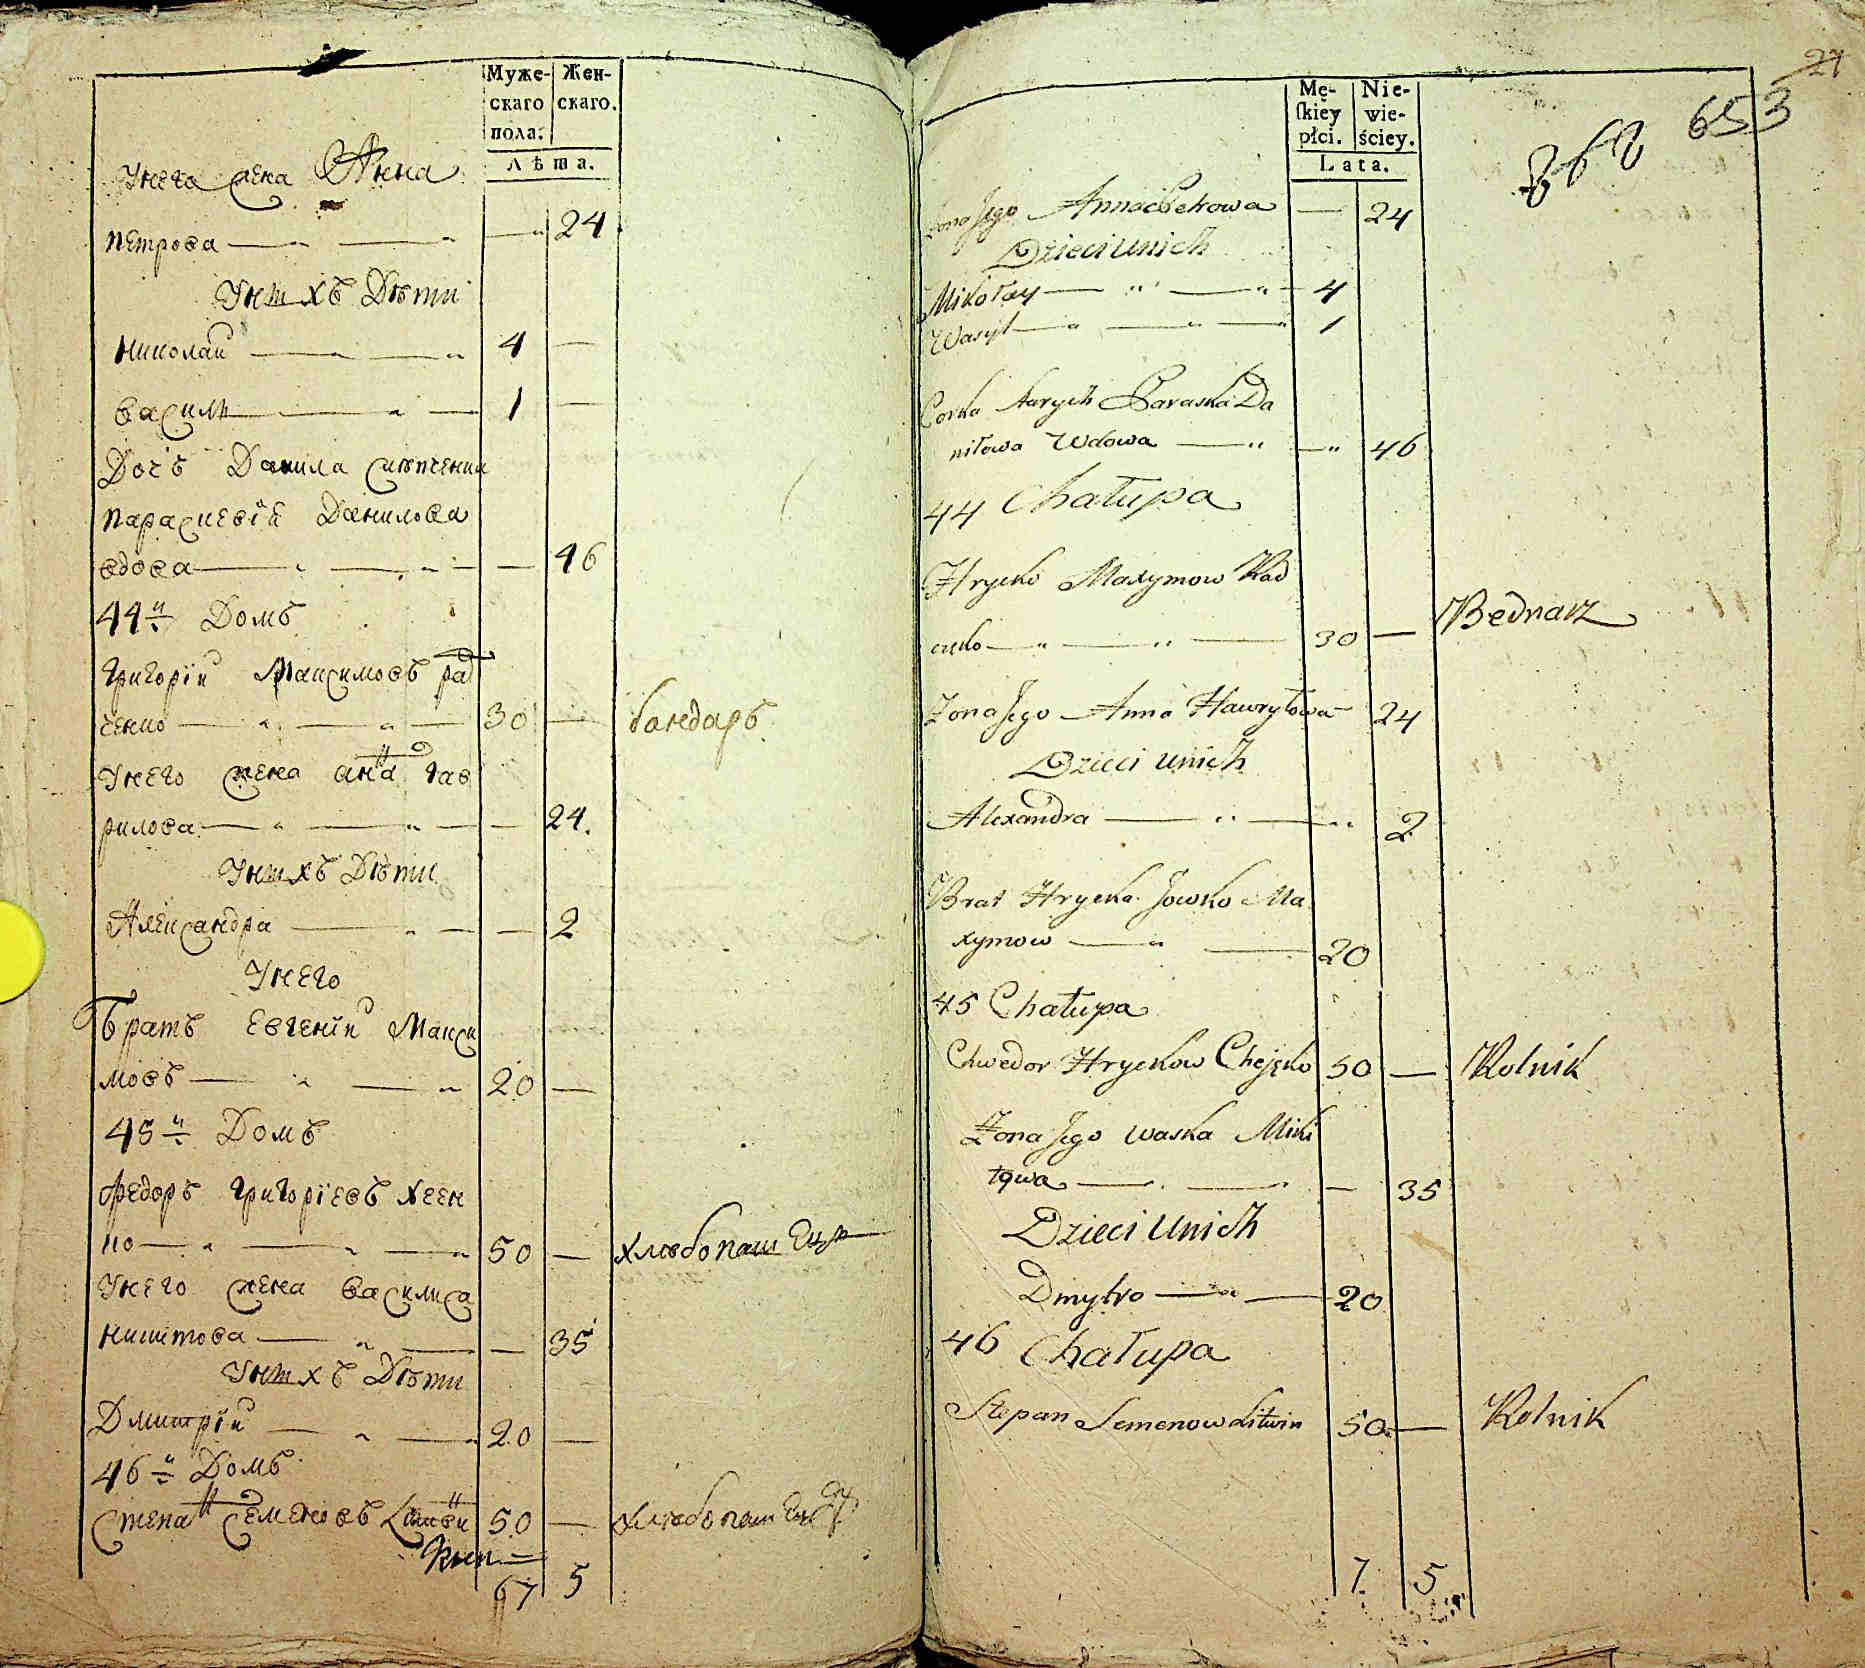 Муже-
скаго
пола.
Жен-
скаго.
Лѣта.
У него жена Анна
Петрова — — — 24
У нихъ Дѣти
Николай — — 4 —
Василь — — 1 —
Дочь Данила
Параскевія Данилова
вдова — — — 46
44й Домъ
Григорій Максимовъ Рад
ченко — — — 30 — бондарь
У него жена Анна Гав
рилова — — — 24.
У нихъ Дѣти
Александра — — — 2
У него
Братъ Евгеній Макси
мовъ — — 20 —
45й Домъ
Федоръ Григоріевъ Хеен
ко — — — 50 — хлѣбопашецъ
У него жена Василиса
Никитова — — — 35
У нихъ Дѣти
Дмитрій — — 20 —
46й Домъ
Степанъ Семеновъ Литвин 50 — хлѣбопашецъ
67 5
Mę-
ſkiey
płci.
Nie-
wie-
ściey.
Lata.
21
653
Zona Jego Anna Petrowa — 24
Dzieci u nich
Mikołay — — 4
Wasyl — — — 1
Corka Paraska Da
niłowa Wdowa — — 46
44 Chałupa
Hrycko Maxymow Rad
czko — — — 30 — Bednarz
Zona Jego Anna Hawryłowa — 24
Dzieci u nich
Alexandra — — 2
Brat Hrycka Jowko Ma
xymow — — 20
45 Chałupa
Chwedor Hryckow Chejęko 50 — Rolnik
Zona Jego Waska Miki
towa — — — 35
Dzieci u nich
Dmytro — — 20
46 Chałupa
Stepan Semenow Litwin 50 — Rolnik
7. 5